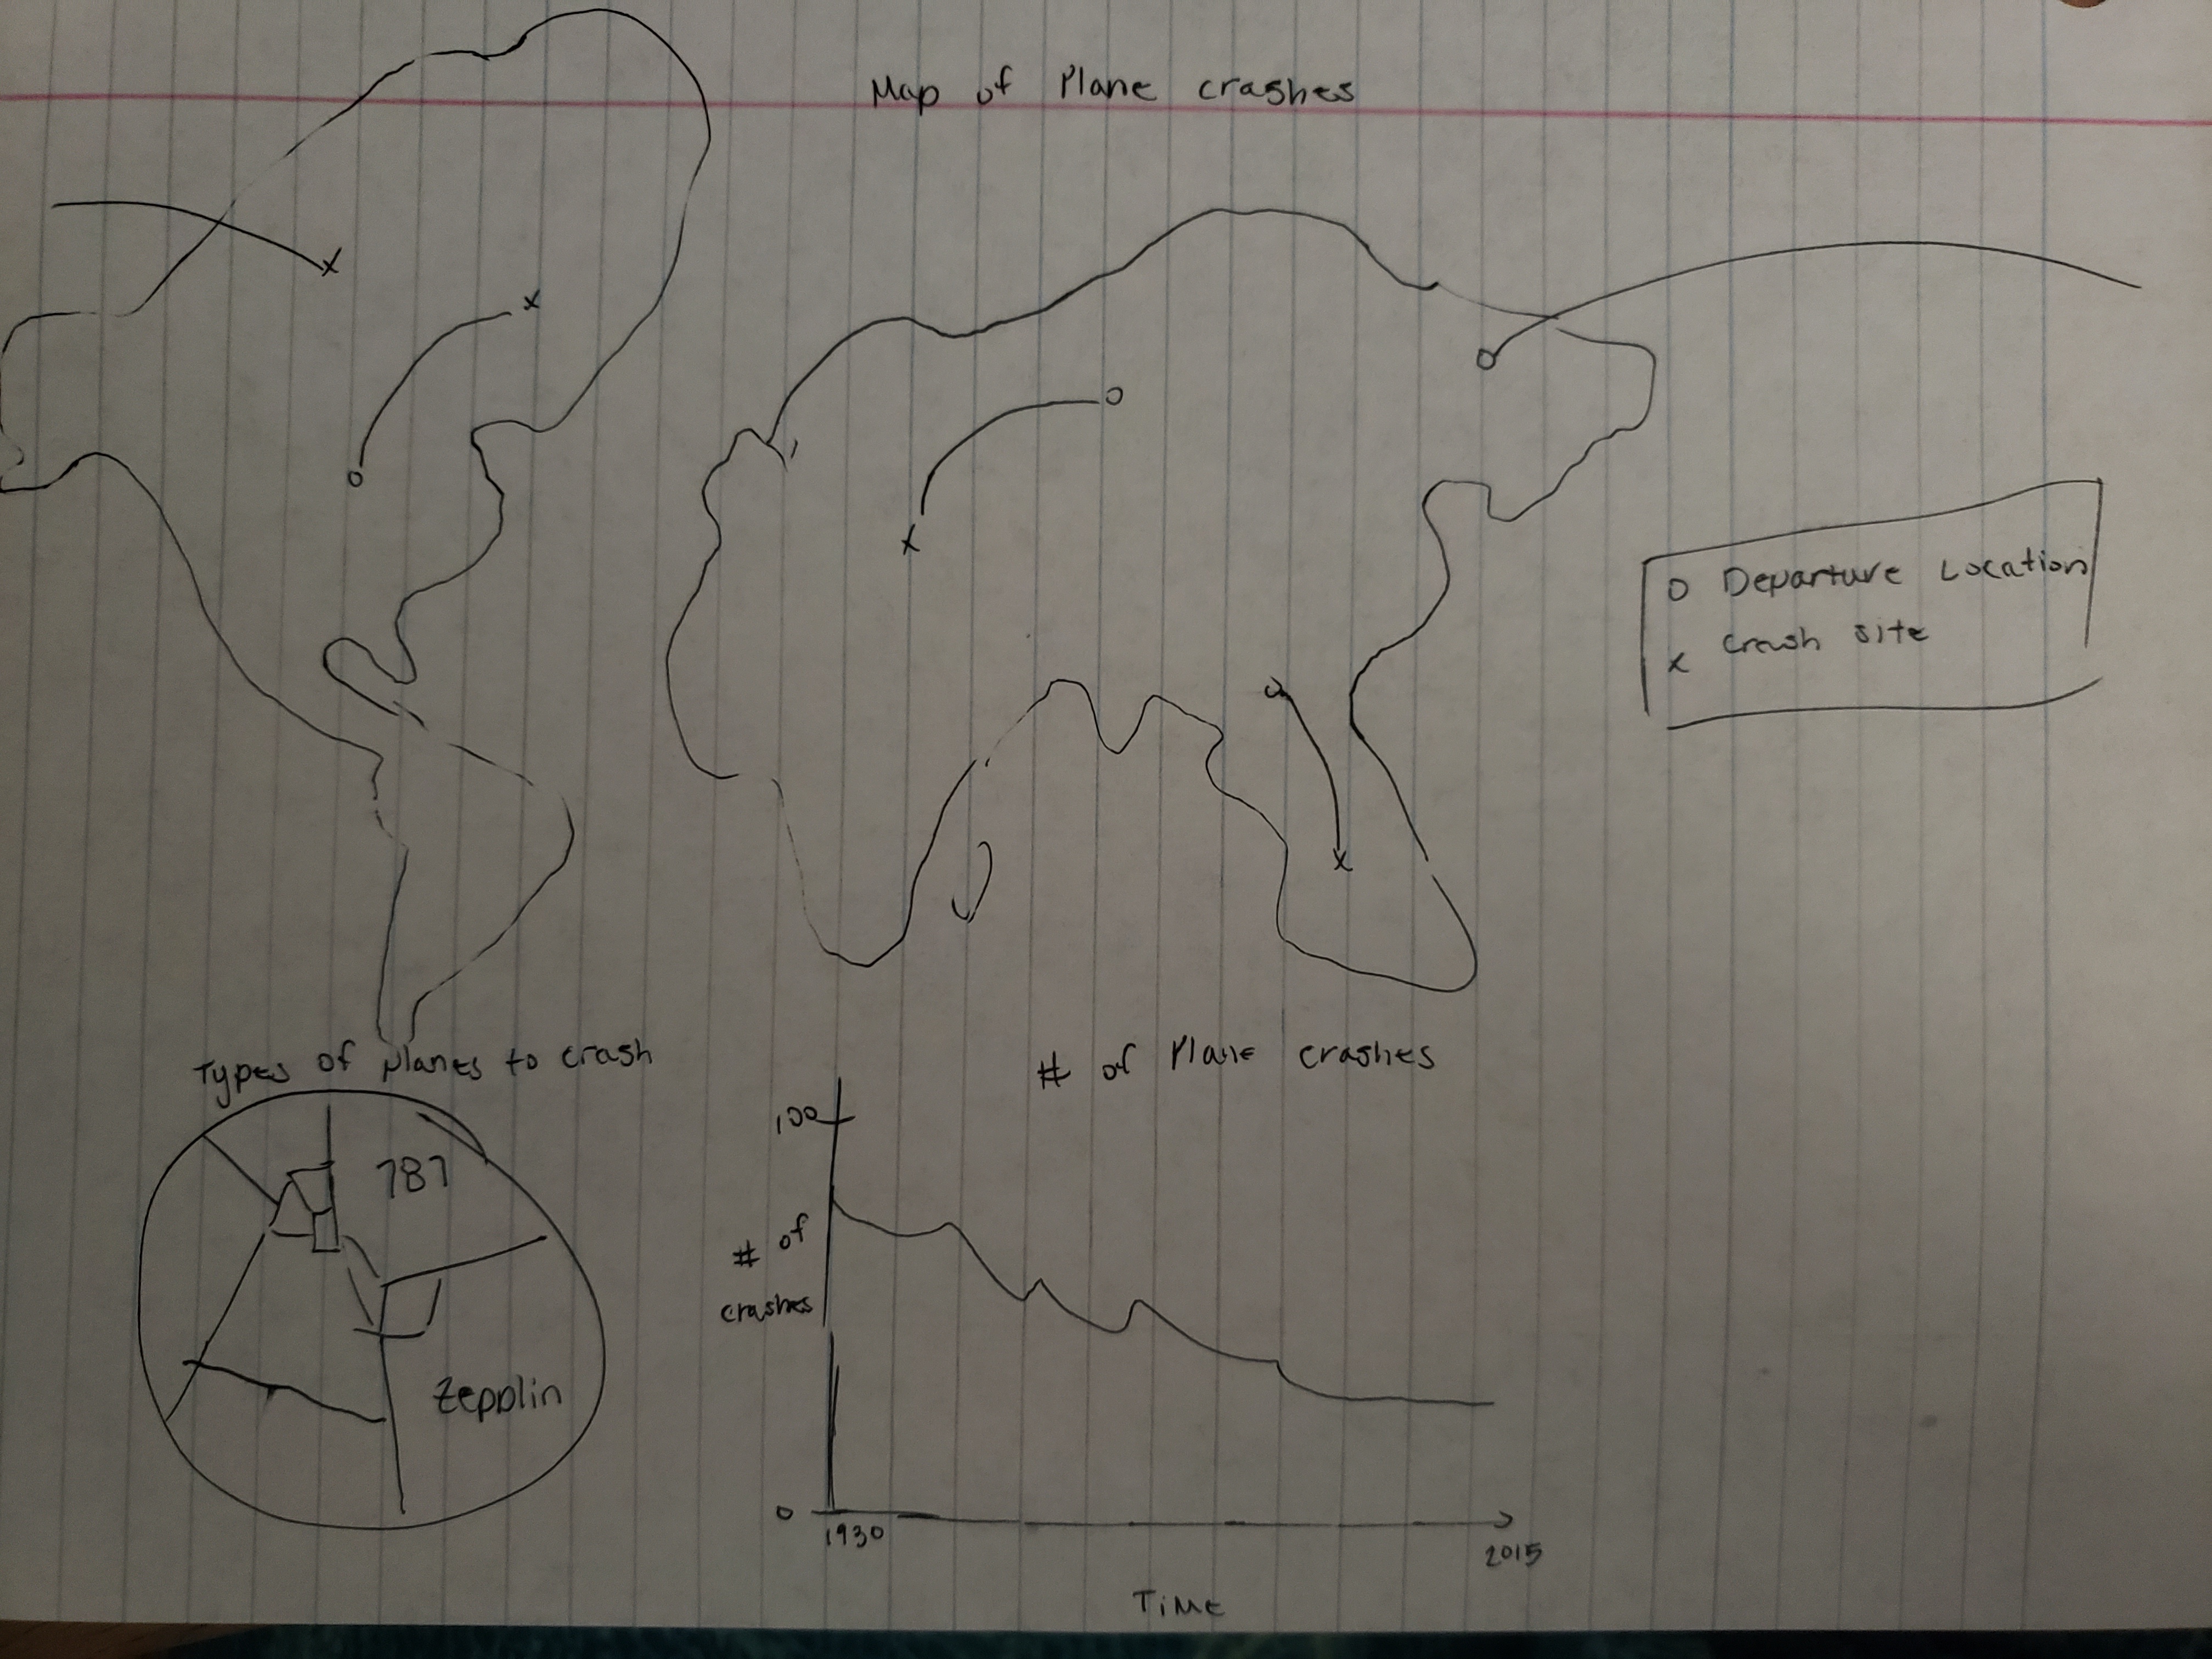 Map of Plane crashes
o Departure Location
x crash site
Types of planes to crash
787
Zepplin
# of Plane crashes
100
# of
crashes
0
1930
2015
Time